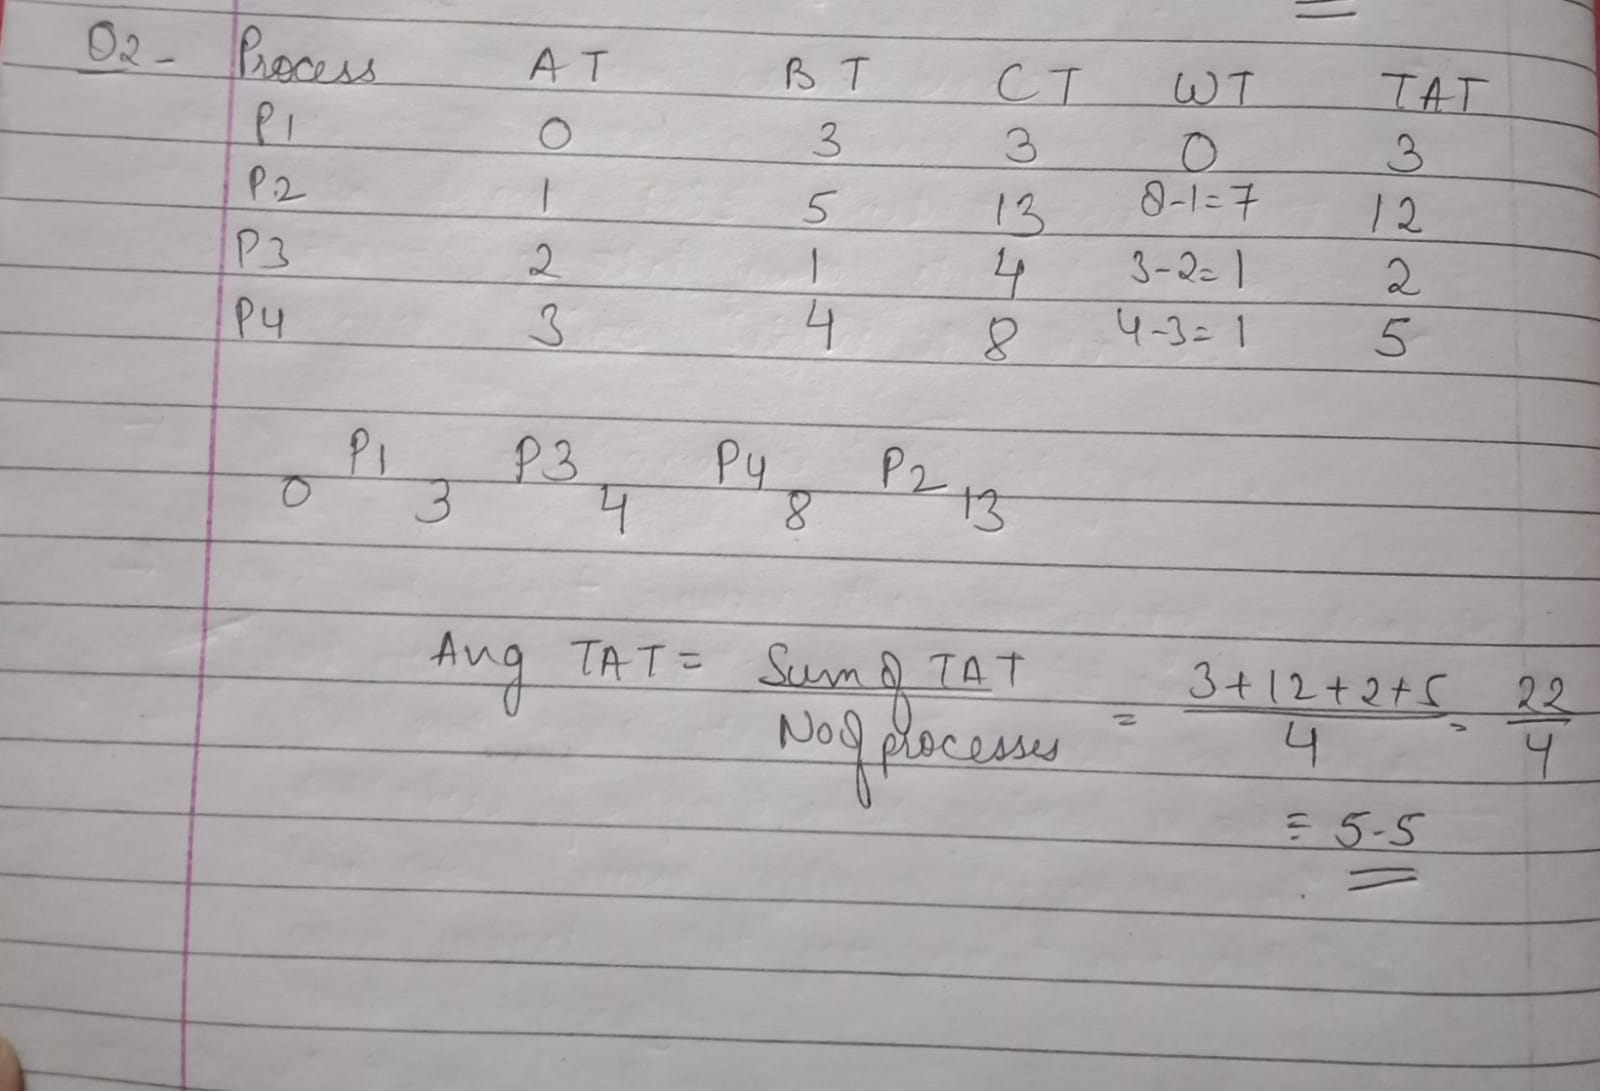 Q2- Process AT BT CT WT TAT
P1 0 3 3 0 3
P2 1 5 13 8-1=7 12
P3 2 1 4 3-2=1 2
P4 3 4 8 4-3=1 5
P1 P3 P4 P2
0 3 4 8 13
Avg TAT = Sum of TAT = 3+12+2+5 = 22
No of processes 4 4
= 5.5